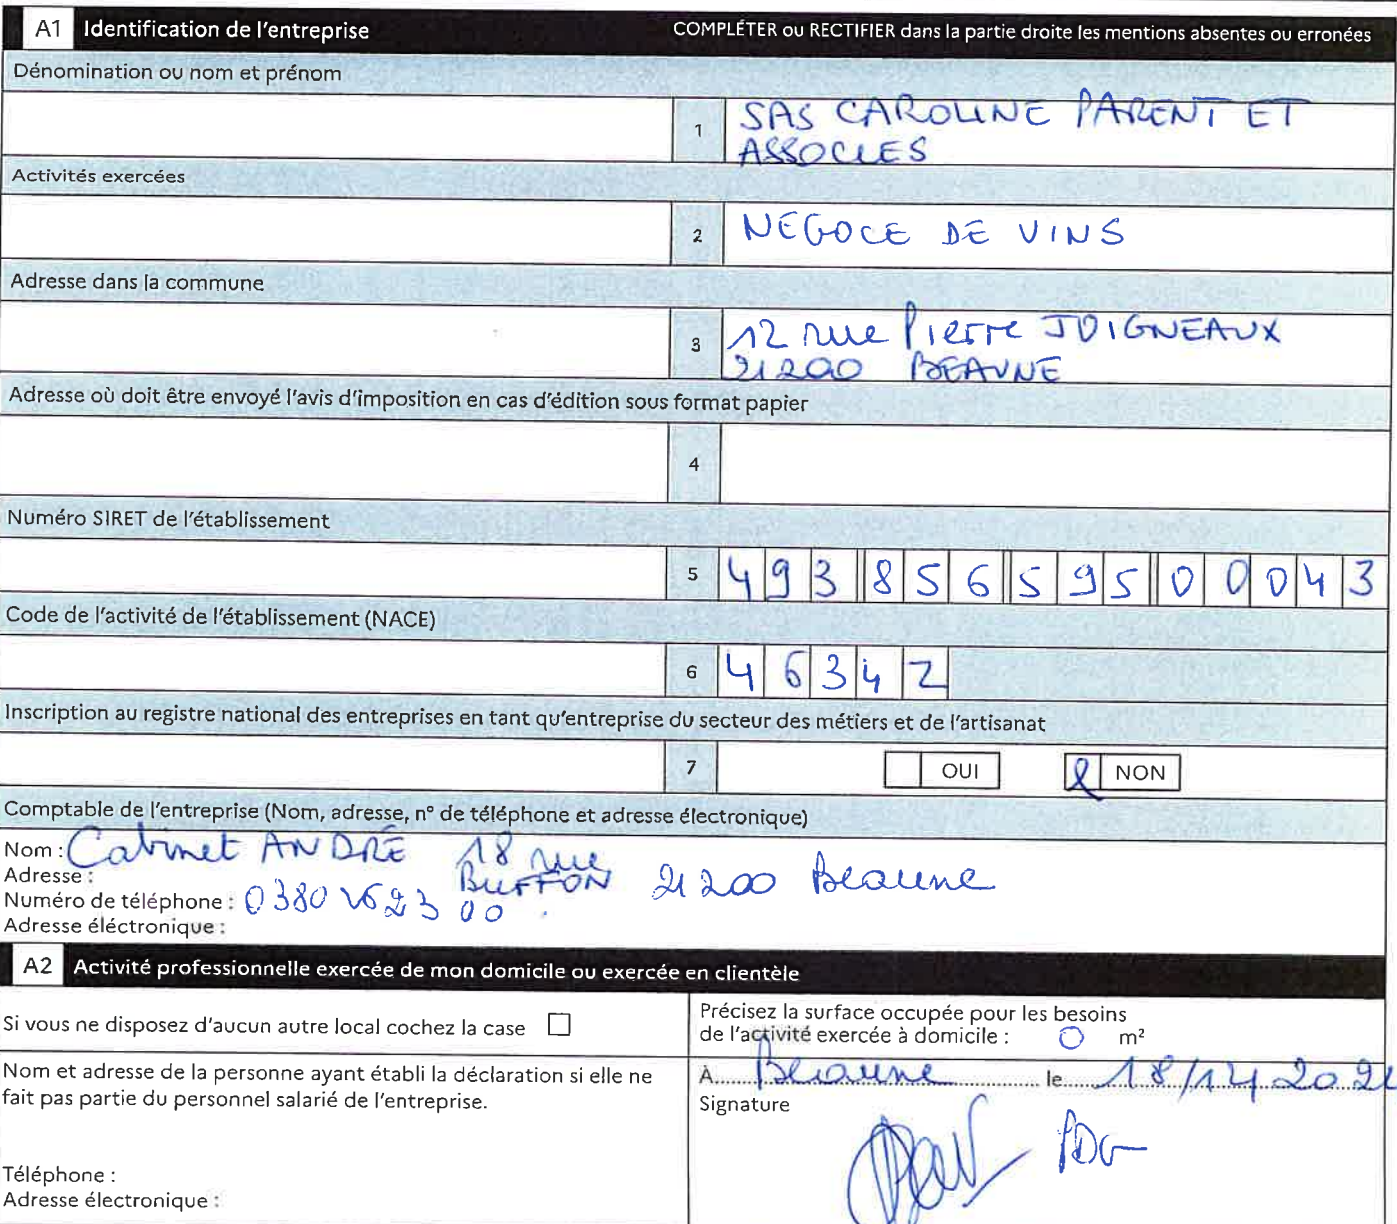 A1 Identification de l'entreprise COMPLÉTER ou RECTIFIER dans la partie droite les mentions absentes ou erronées
Dénomination ou nom et prénom
1 SAS CAROLINE PARENT ET
ASSOCIES
Activités exercées
2 NEGOCE DE VINS
Adresse dans la commune
3 12 rue Pierre JOIGNEAUX
21200 BEAUNE
Adresse où doit être envoyé l'avis d'imposition en cas d'édition sous format papier
4
Numéro SIRET de l'établissement
5 4 9 3 8 5 6 5 9 5 0 0 0 4 3
Code de l'activité de l'établissement (NACE)
6 4 6 3 4 Z
Inscription au registre national des entreprises en tant qu'entreprise du secteur des métiers et de l'artisanat
7 OUI NON
Comptable de l'entreprise (Nom, adresse, n° de téléphone et adresse électronique)
Nom : Cabinet ANDRÉ 18 rue
Adresse : BUFFON 21200 Beaune
Numéro de téléphone : 0380 2623 00
Adresse éléctronique :
A2 Activité professionnelle exercée de mon domicile ou exercée en clientèle
Si vous ne disposez d'aucun autre local cochez la case
Précisez la surface occupée pour les besoins
de l'activité exercée à domicile : 0 m²
Nom et adresse de la personne ayant établi la déclaration si elle ne
fait pas partie du personnel salarié de l'entreprise.
À Beaune le 18/12/202
Signature
PDG
Téléphone :
Adresse électronique :